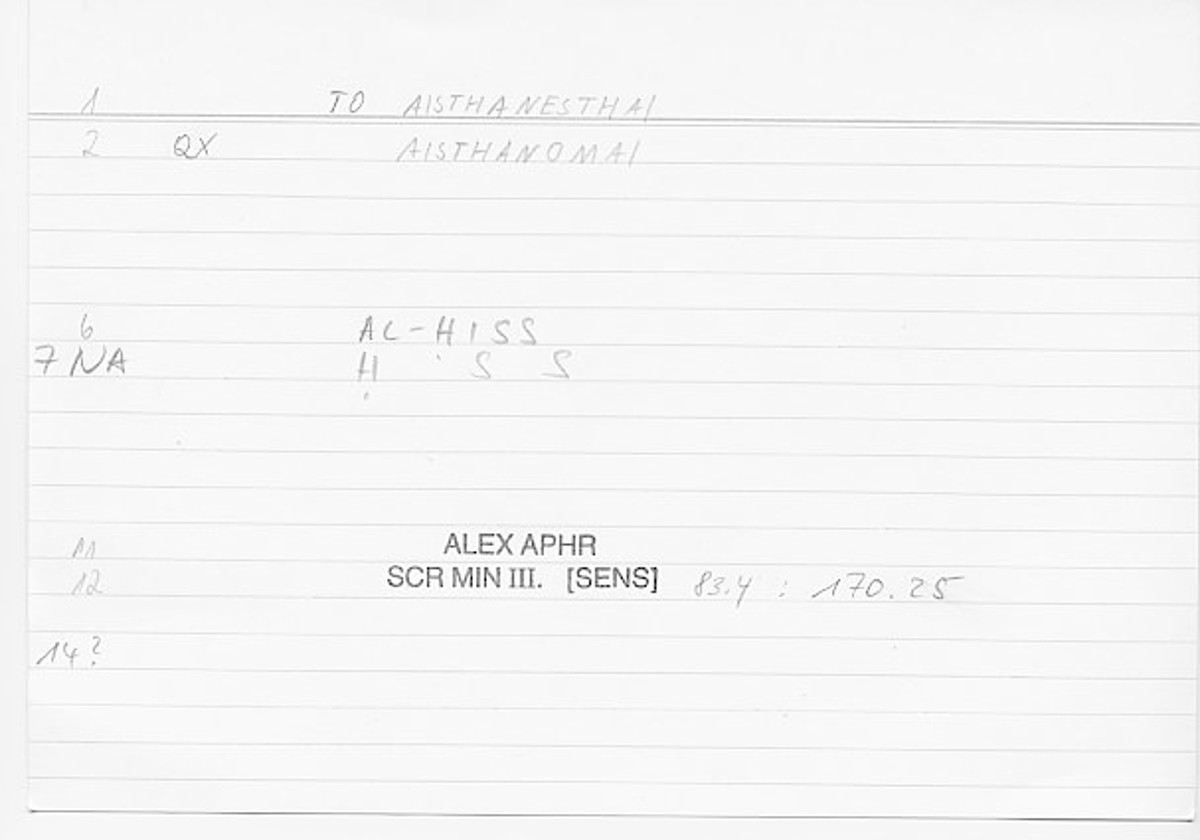 1 TO AISTHANESTHAI
2 QX AISTHANOMAI
6 AL-HISS
7 NA Ḥ ' S S
11 ALEX APHR
12 SCR MIN III. [SENS] 83.4 : 170.25
14?